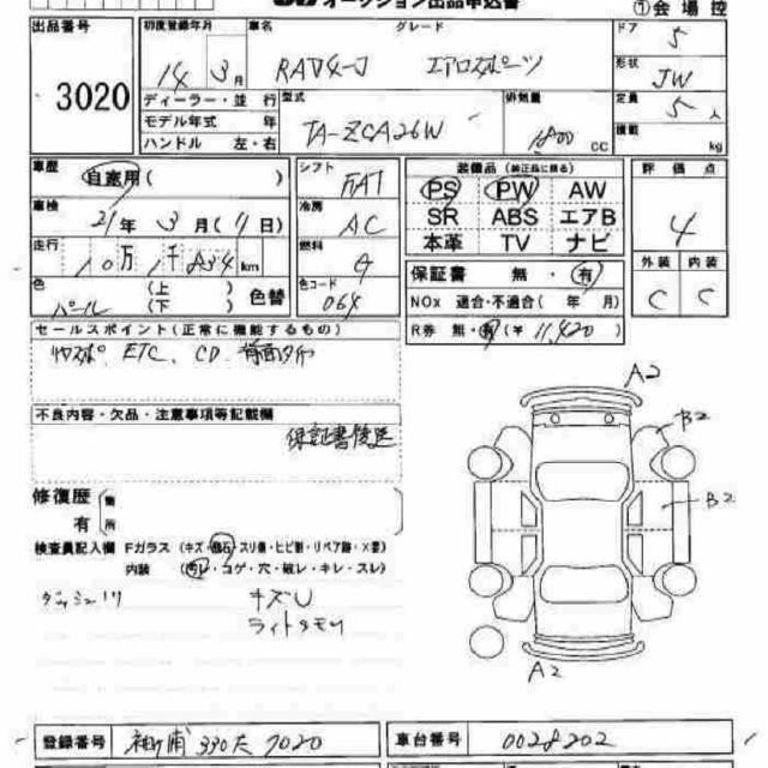 オークション出品申込書
①会場控
出品番号 初度登録年月 車名 グレード ドア 5
3020 14 3月 RAV4-J エアロスポーツ
形状 JW
ディーラー・並行 型式 排気量 定員 5人
モデル年式 年 TA-ZCA26W 1800 CC 積載 kg
ハンドル 左・右
車歴 自家用( ) シフト FAT 装備品 (純正品に限る) 評価点
PS PW AW 4
車検 21年 3月(11日) 冷房 AC SR ABS エアB
本革 TV ナビ
走行 10万1千834km 燃料 G 外装 内装
保証書 無・有 C C
色 パール (上) (下) 色替 色コード 064
NOx 適合・不適合( 年 月)
R券 無・有(¥ 11,420)
セールスポイント(正常に機能するもの)
ETC、CD、背面タイヤ
不良内容・欠品・注意事項等記載欄
保証書後送
修復歴 有 箇所
検査員記入欄 Fガラス (キズ・飛石・スリ傷・ヒビ割・リペア跡・X要)
内装 (汚レ・コゲ・穴・破レ・キレ・スレ)
キズU
A2
B2
B2
A2
登録番号 袖ヶ浦 330 7020 車台番号 0028202